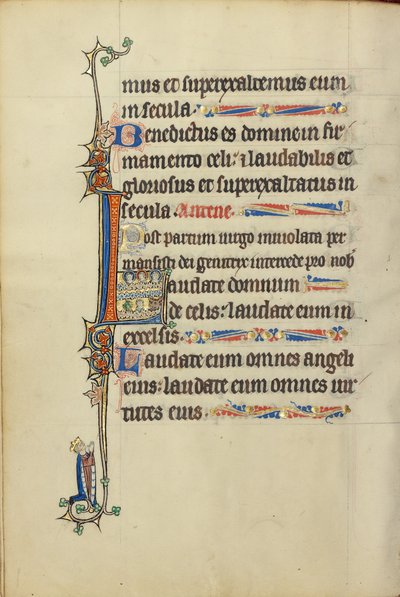 mus et superexaltemus eum
in secula.
Benedictus es domine in fir
mamento celi: et laudabilis et
gloriosus et superexaltatus in
secula. Antene.
Post partum uirgo inuiolata per
mansisti dei genitrix intercede pro nob
Laudate dominum
de celis: laudate eum in
excelsis.
Laudate eum omnes angeli
eius: laudate eum omnes uir
tutes eius.